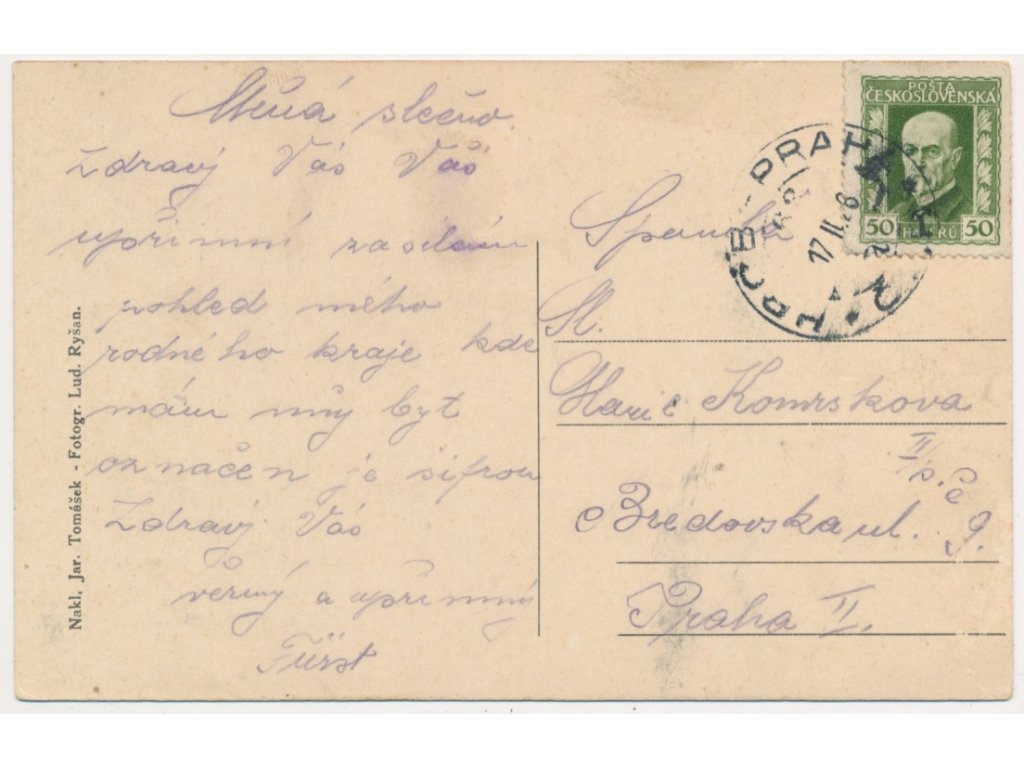 slečno.
Zdravý Vás Váš
upřimný zasílám
pohled mého
rodného kraje kde
mám můj byt
označen je šifrou
Zdravý Vás
věrný a upřimný
Fürst
Nakl, Jar. Tomášek - Fotogr. Lud. Ryšan.
POŠTA
ČESKOSLOVENSKÁ
50 HALÉŘŮ 50
PRAHA
17 II. 28
Sl.
Marie Komrskova
II/p. č
Bredovska ul. 9.
Praha II.